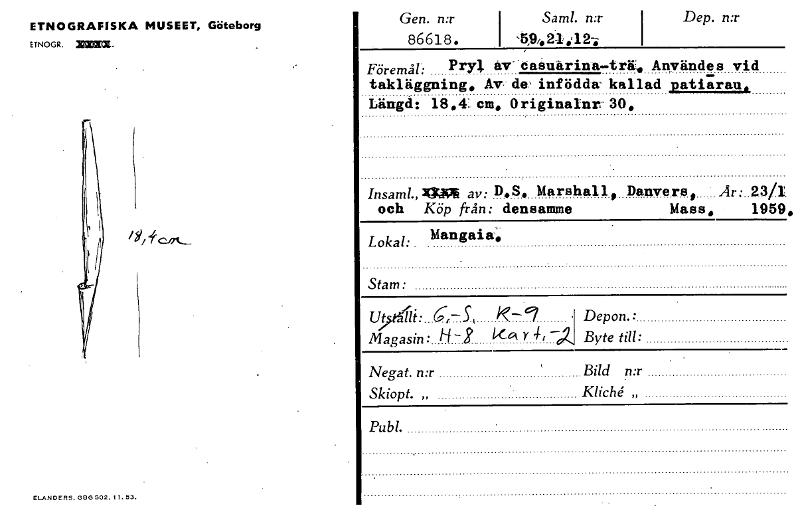 ETNOGRAFISKA MUSEET, Göteborg
ETNOGR.
18,4 cm
ELANDERS. GBG 502. 11. 53.
Gen. n:r Saml. n:r Dep. n:r
86618. 59.21.12.
Föremål: Pryl av casuarina-trä. Användes vid
takläggning. Av de infödda kallad patiārau.
Längd: 18.4 cm. Originalnr 30.
Insaml., av: D.S. Marshall, Danvers, År: 23/1
och Köp från: densamme Mass. 1959.
Lokal: Mangaia.
Stam:
Utställt: G.-S. K-9 Depon.:
Magasin: H-8 Kart.-2 Byte till:
Negat. n:r Bild n:r
Skiopt. „ Kliché „
Publ.